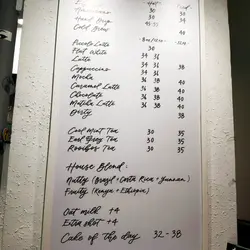 Hand Drip 45
Cold Brew 40
Piccolo Latte 30
Flat White 34 36
Latte 34 36
Cappuccino 34 36 38
Mocha 36 38 40
Caramel Latte 36 38 40
Chocolate 36 38 40
Matcha Latte 36 38 40
Dirty 38
Cool Mint Tea 30 35
Earl Grey Tea 30 35
Rooibos Tea 30 35
House Blend:
Nutty (Brazil + Costa Rica + Yunnan)
Fruity (Kenya + Ethiopia)
Oat milk +4
Extra shot +4
Cake of the day 32-38